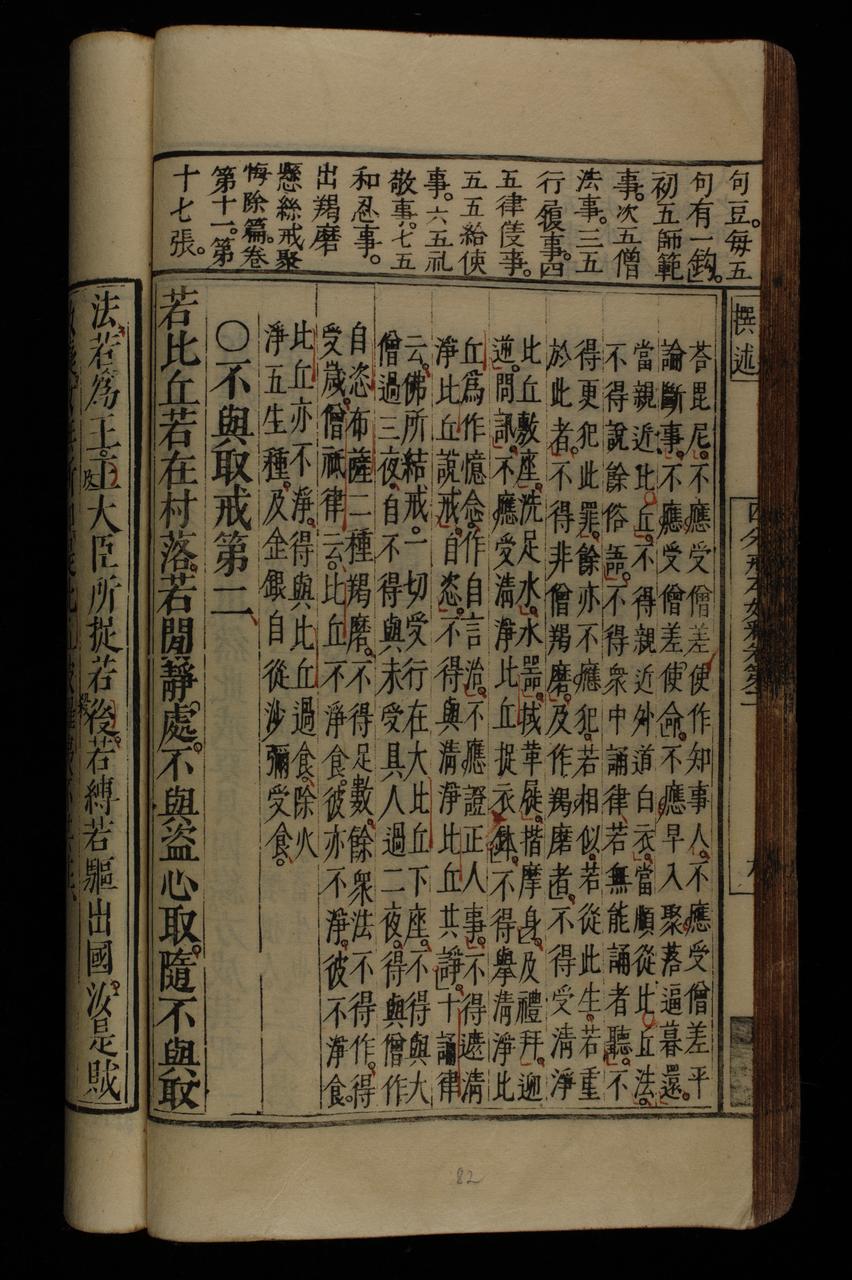 句豆。每五
句有一鈎。
初五師範
事。次五僧
法事。三五
行履事。四
五律事。
五五給使
事。六五礼
敬事。七五
和忍事。
出羯磨
懸絲戒聚
悔除篇。卷
第十一。第
十七張。
撰述
四分戒本如釋卷第二
荅毘尼。不應受僧差使作知事人。不應受僧差平
論斷事。不應受僧差使命。不應早入聚落逼暮還。
當親近比丘。不得親近外道白衣。當順從比丘法。
不得說餘俗語。不得衆中誦律。若無能誦者聽。不
得更犯此罪。餘亦不應犯。若相似。若從此生。若重
於此者。不得非僧羯磨。及作羯磨者。不得受清淨
比丘敷座。洗足水。水器。拭革屣。揩摩身。及禮拜。迎
逆。問訊。不應受清淨比丘捉衣鉢。不得舉清淨比
丘爲作憶念。作自言治。不應證正人事。不得遮清
淨比丘說戒。自恣。不得與清淨比丘共諍。十誦律
云。佛所結戒。一切受行在大比丘下座。不得與大
僧過三夜。自不得與未受具人過二夜。得與僧作
自恣布薩二種羯磨。不得足數。餘衆法不得作。得
受歲。僧祇律云。比丘不淨食。彼亦不淨。彼不淨食。
比丘亦不淨。得與比丘過食。除火
淨五生種。及金銀自從沙彌受食。
〇不與取戒第二
若比丘若在村落。若閒靜處。不與盜心取。隨不與取
法。若爲王。及王大臣所捉若殺。若縛若驅出國。汝是賊
82